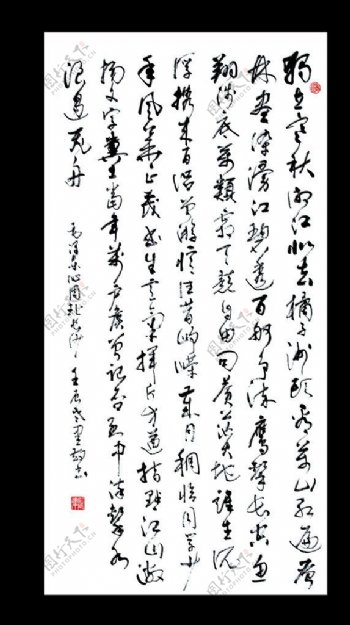 独立寒秋湘江北去橘子洲头看万山红遍层
林尽染漫江碧透百舸争流鹰击长空鱼
翔浅底万类霜天竞自由问苍茫大地谁主沉
浮携来百侣曾游忆往昔峥嵘岁月稠恰同学少
年风华正茂书生意气挥斥方遒指点江山激
扬文字粪土当年万户侯曾记否到中流击水
浪遏飞舟
毛泽东沁园春长沙 壬辰冬
图行天下
PHOTOPHOTO.CN